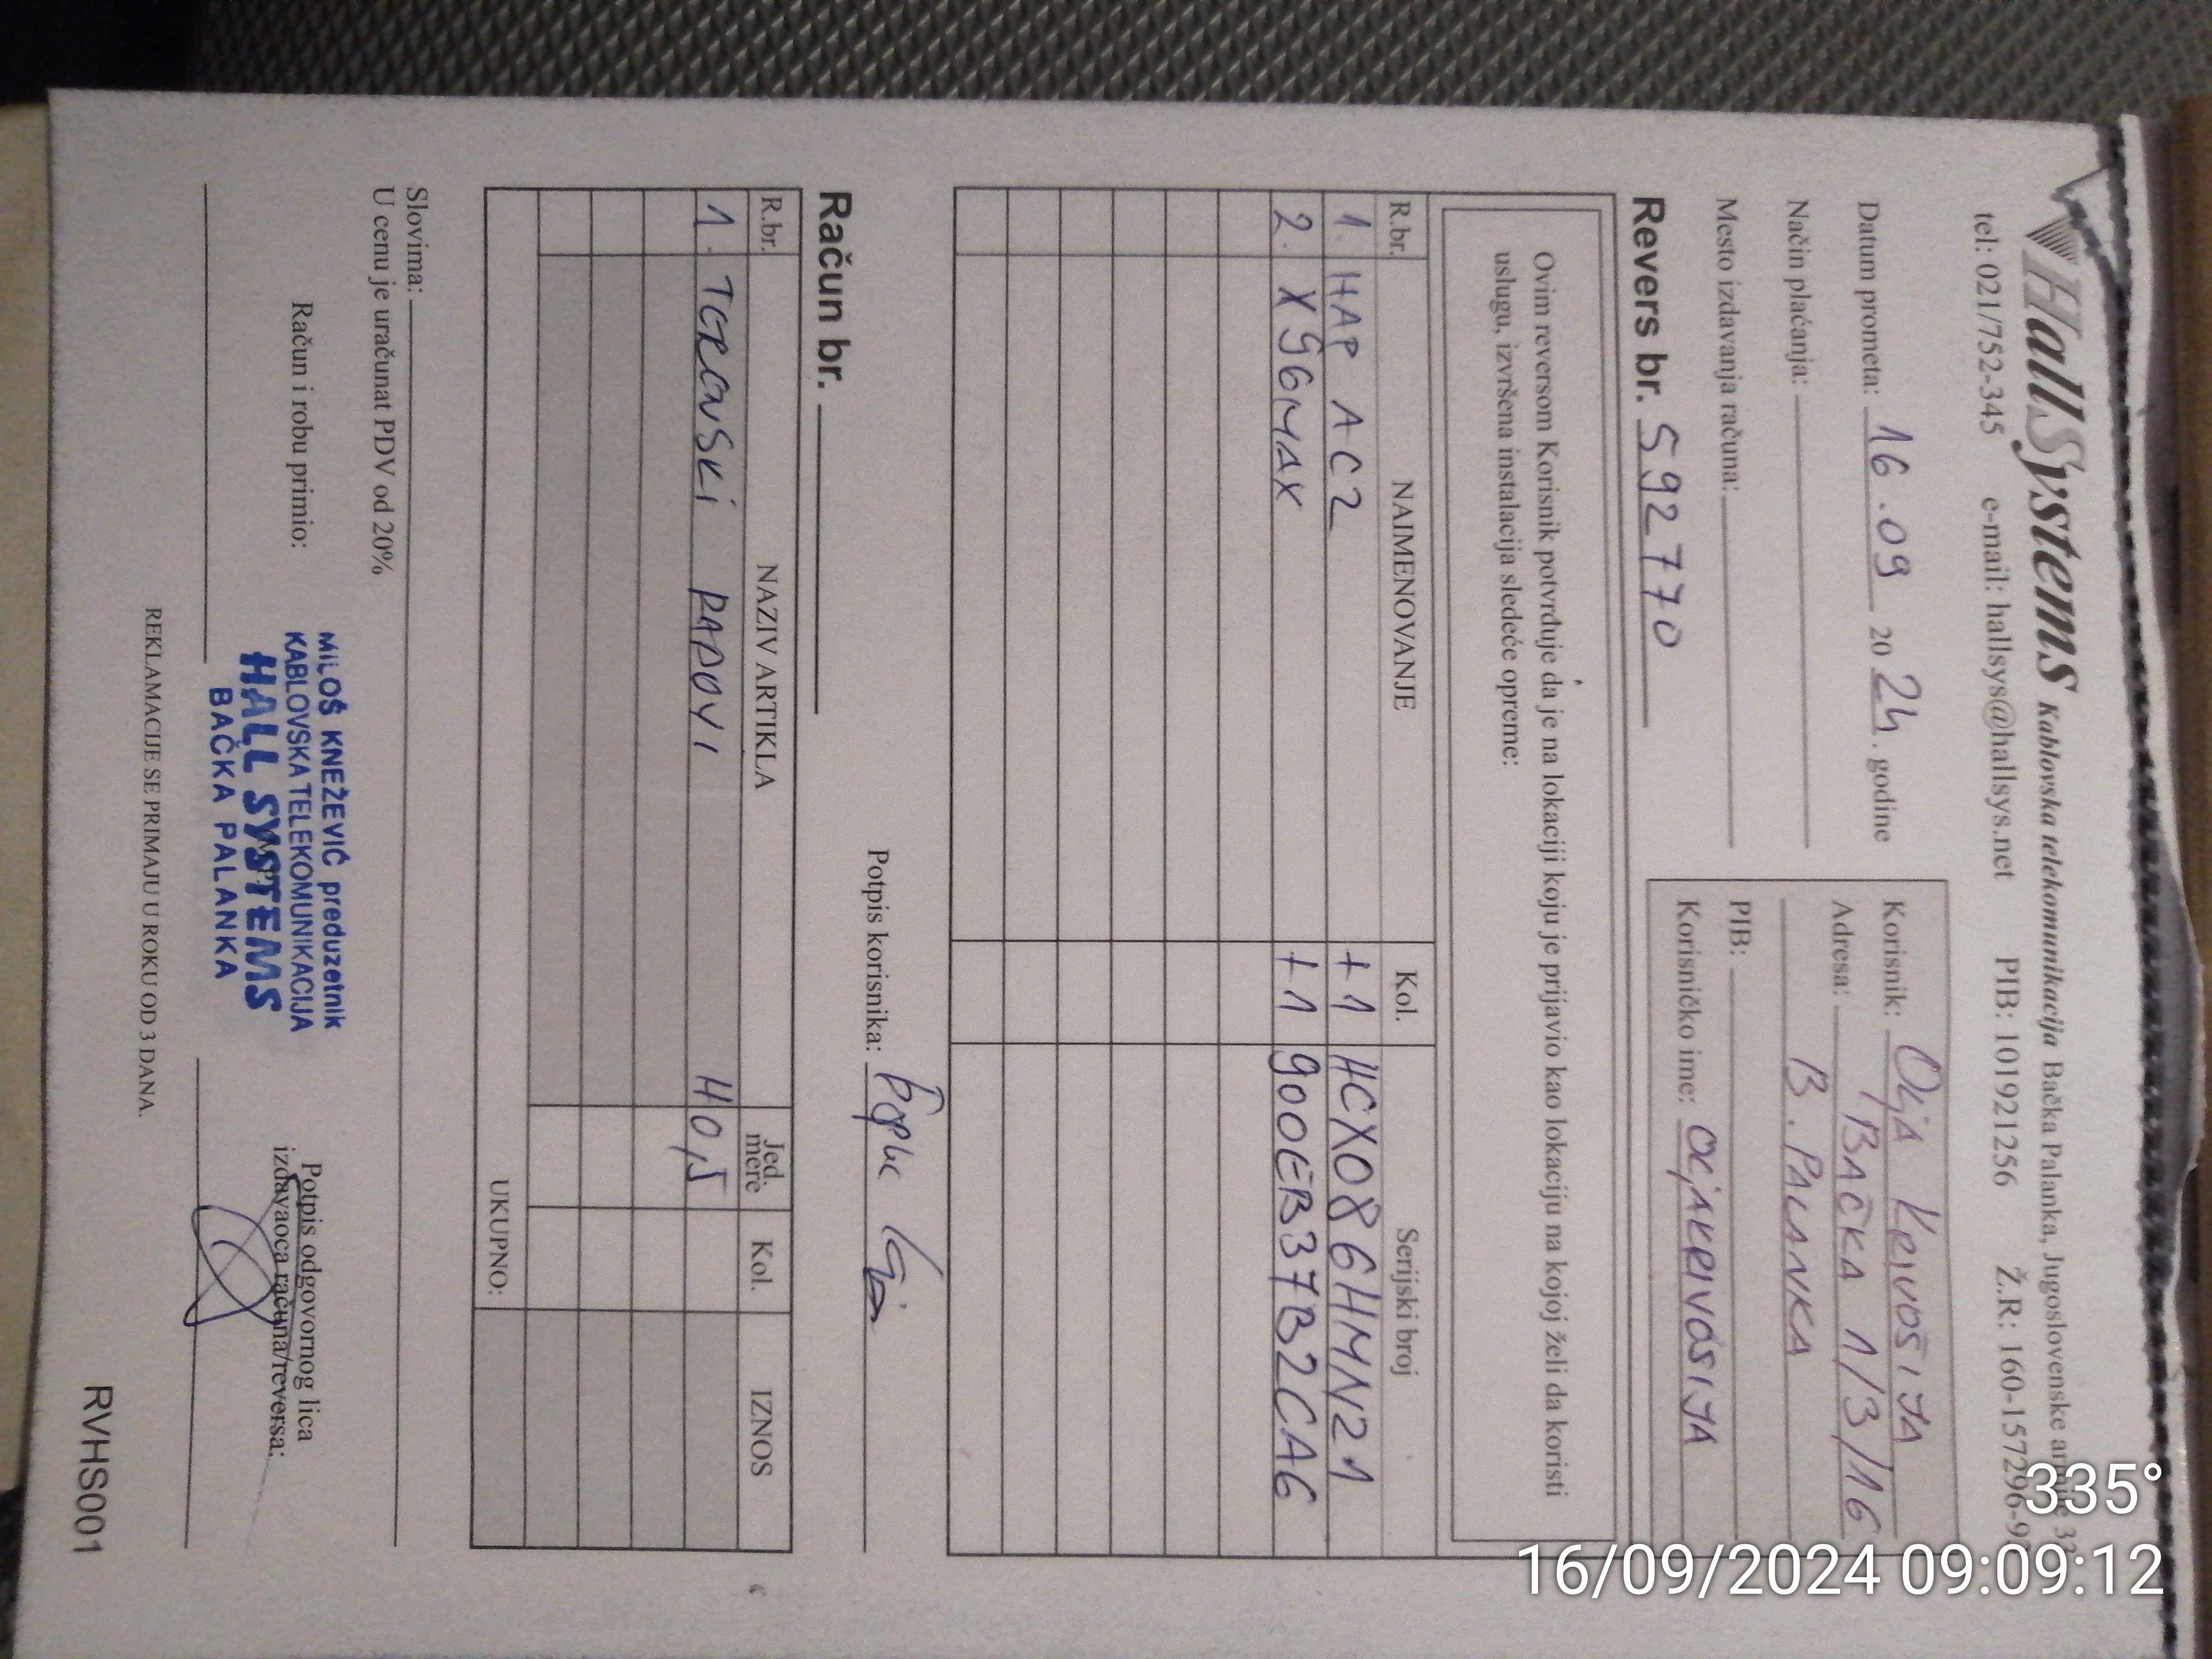 HallSystems Kablovska telekomunikacija Bačka Palanka, Jugoslovenske armije 32
tel: 021/752-345 e-mail: hallsys@hallsys.net PIB: 101921256 Ž.R: 160-157296-9
Datum prometa: 16.09 2024. godine
Način plaćanja:
Mesto izdavanja računa:
Korisnik: Olja Krivošija
Adresa: Bačka 1/3/16
B. Palanka
PIB:
Korisničko ime: oljakrivosija
Revers br. 592770
Ovim reversom Korisnik potvrđuje da je na lokaciji koju je prijavio kao lokaciju na kojoj želi da koristi
uslugu, izvršena instalacija sledeće opreme:
R.br. NAIMENOVANJE Kol. Serijski broj
1. HAP AC2 +1 HCX086HMN21
2. X5GMAX +1 900EB37B2CA6
Potpis korisnika:
Račun br.
R.br. NAZIV ARTIKLA Jed. mere Kol. IZNOS
1. TERENSKI RADOVI H0,5
UKUPNO:
Slovima:
U cenu je uračunat PDV od 20%
Račun i robu primio:
MILOŠ KNEŽEVIĆ preduzetnik
KABLOVSKA TELEKOMUNIKACIJA
HALL SYSTEMS
BAČKA PALANKA
Potpis odgovornog lica
izdavaoca računa/reversa:
REKLAMACIJE SE PRIMAJU U ROKU OD 3 DANA.
RVHS001
335°
16/09/2024 09:09:12